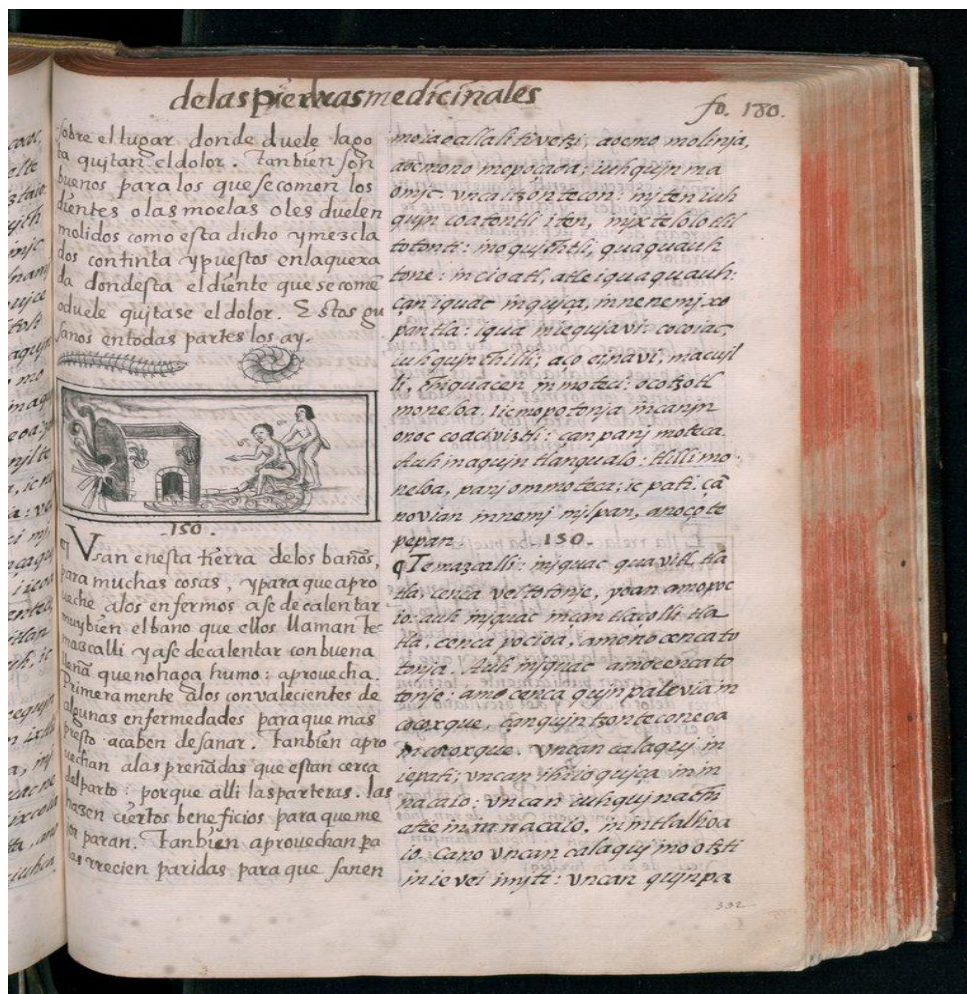 delas piedras medicinales
fo. 180.
sobre el lugar donde duele la go
ta quitan el dolor. Tanbien son
buenos para los que se comen los
dientes o las moelas o les duelen
molidos como esta dicho y mezcla
dos con tinta y puestos en la quexa
da dondesta el diente que se come
o duele quitase el dolor. Estos gu
sanos en todas partes los ay.
150.
Vsan en esta tierra delos baños,
para muchas cosas, y para que apro
ueche alos enfermos a se de calentar
muy bien el baño que ellos llaman te
mazcalli y a se de calentar con buena
leña que no haga humo: aprouecha.
Primeramente alos conualecientes de
algunas enfermedades para que mas
presto acaben de sanar. Tanbien apro
uechan a las preñadas que estan cerca
del parto: porque alli las parteras. las
hazen ciertos beneficios para que me
jor paran. Tanbien aprouechan pa
las rrecien paridas para que sanen
moiaoallali tivetzi, aoemo molinja,
aocmono mopoçaoa; iuhqujn ma
omjc. vncan tzontecon: injten iuh
qujn coatentli iten, njxtelolotlil
totonti: in oqujchtli, quaquauh
tone: in cioatl, atle iquaquauh:
çan iquac inqujça, in nenemj xo
pantla: iqua miequjavi: cococ,
iuhqujn chilli; aço einavi, macujl
li, anoçe in moteci: ocotzotl
moneloa. ic mopotonja in canjn
onoc coaciviztli: çan panj moteca.
Auh in aqujn tlanqualo: tlilli mo
neloa, panj ommoteca; ic pati. çã
novian in nemj mjlpan, anoço te
pepan. 150.
Temazcalli: injquac quavitl tla
tla, cenca vel totonje, yoan amo poc
io: auh injquac incan tlaçolli tla
tla, cenca pocioa, amono cenca to
tonja. Auh injquac amo cenca to
tonje: amo cenca qujnpalevia in
cocoxque, çan qujn tzonteconeoa
in cocoxque. Vncan calaquj in
iepati; vncan ihiio qujça in in
nacaio: vncan iuhquj nachi
atie in innacaio, in intlalhoa
io. Çano vncan calaquj in ootzti
in ie vei imjti: vncan qujnpa
332